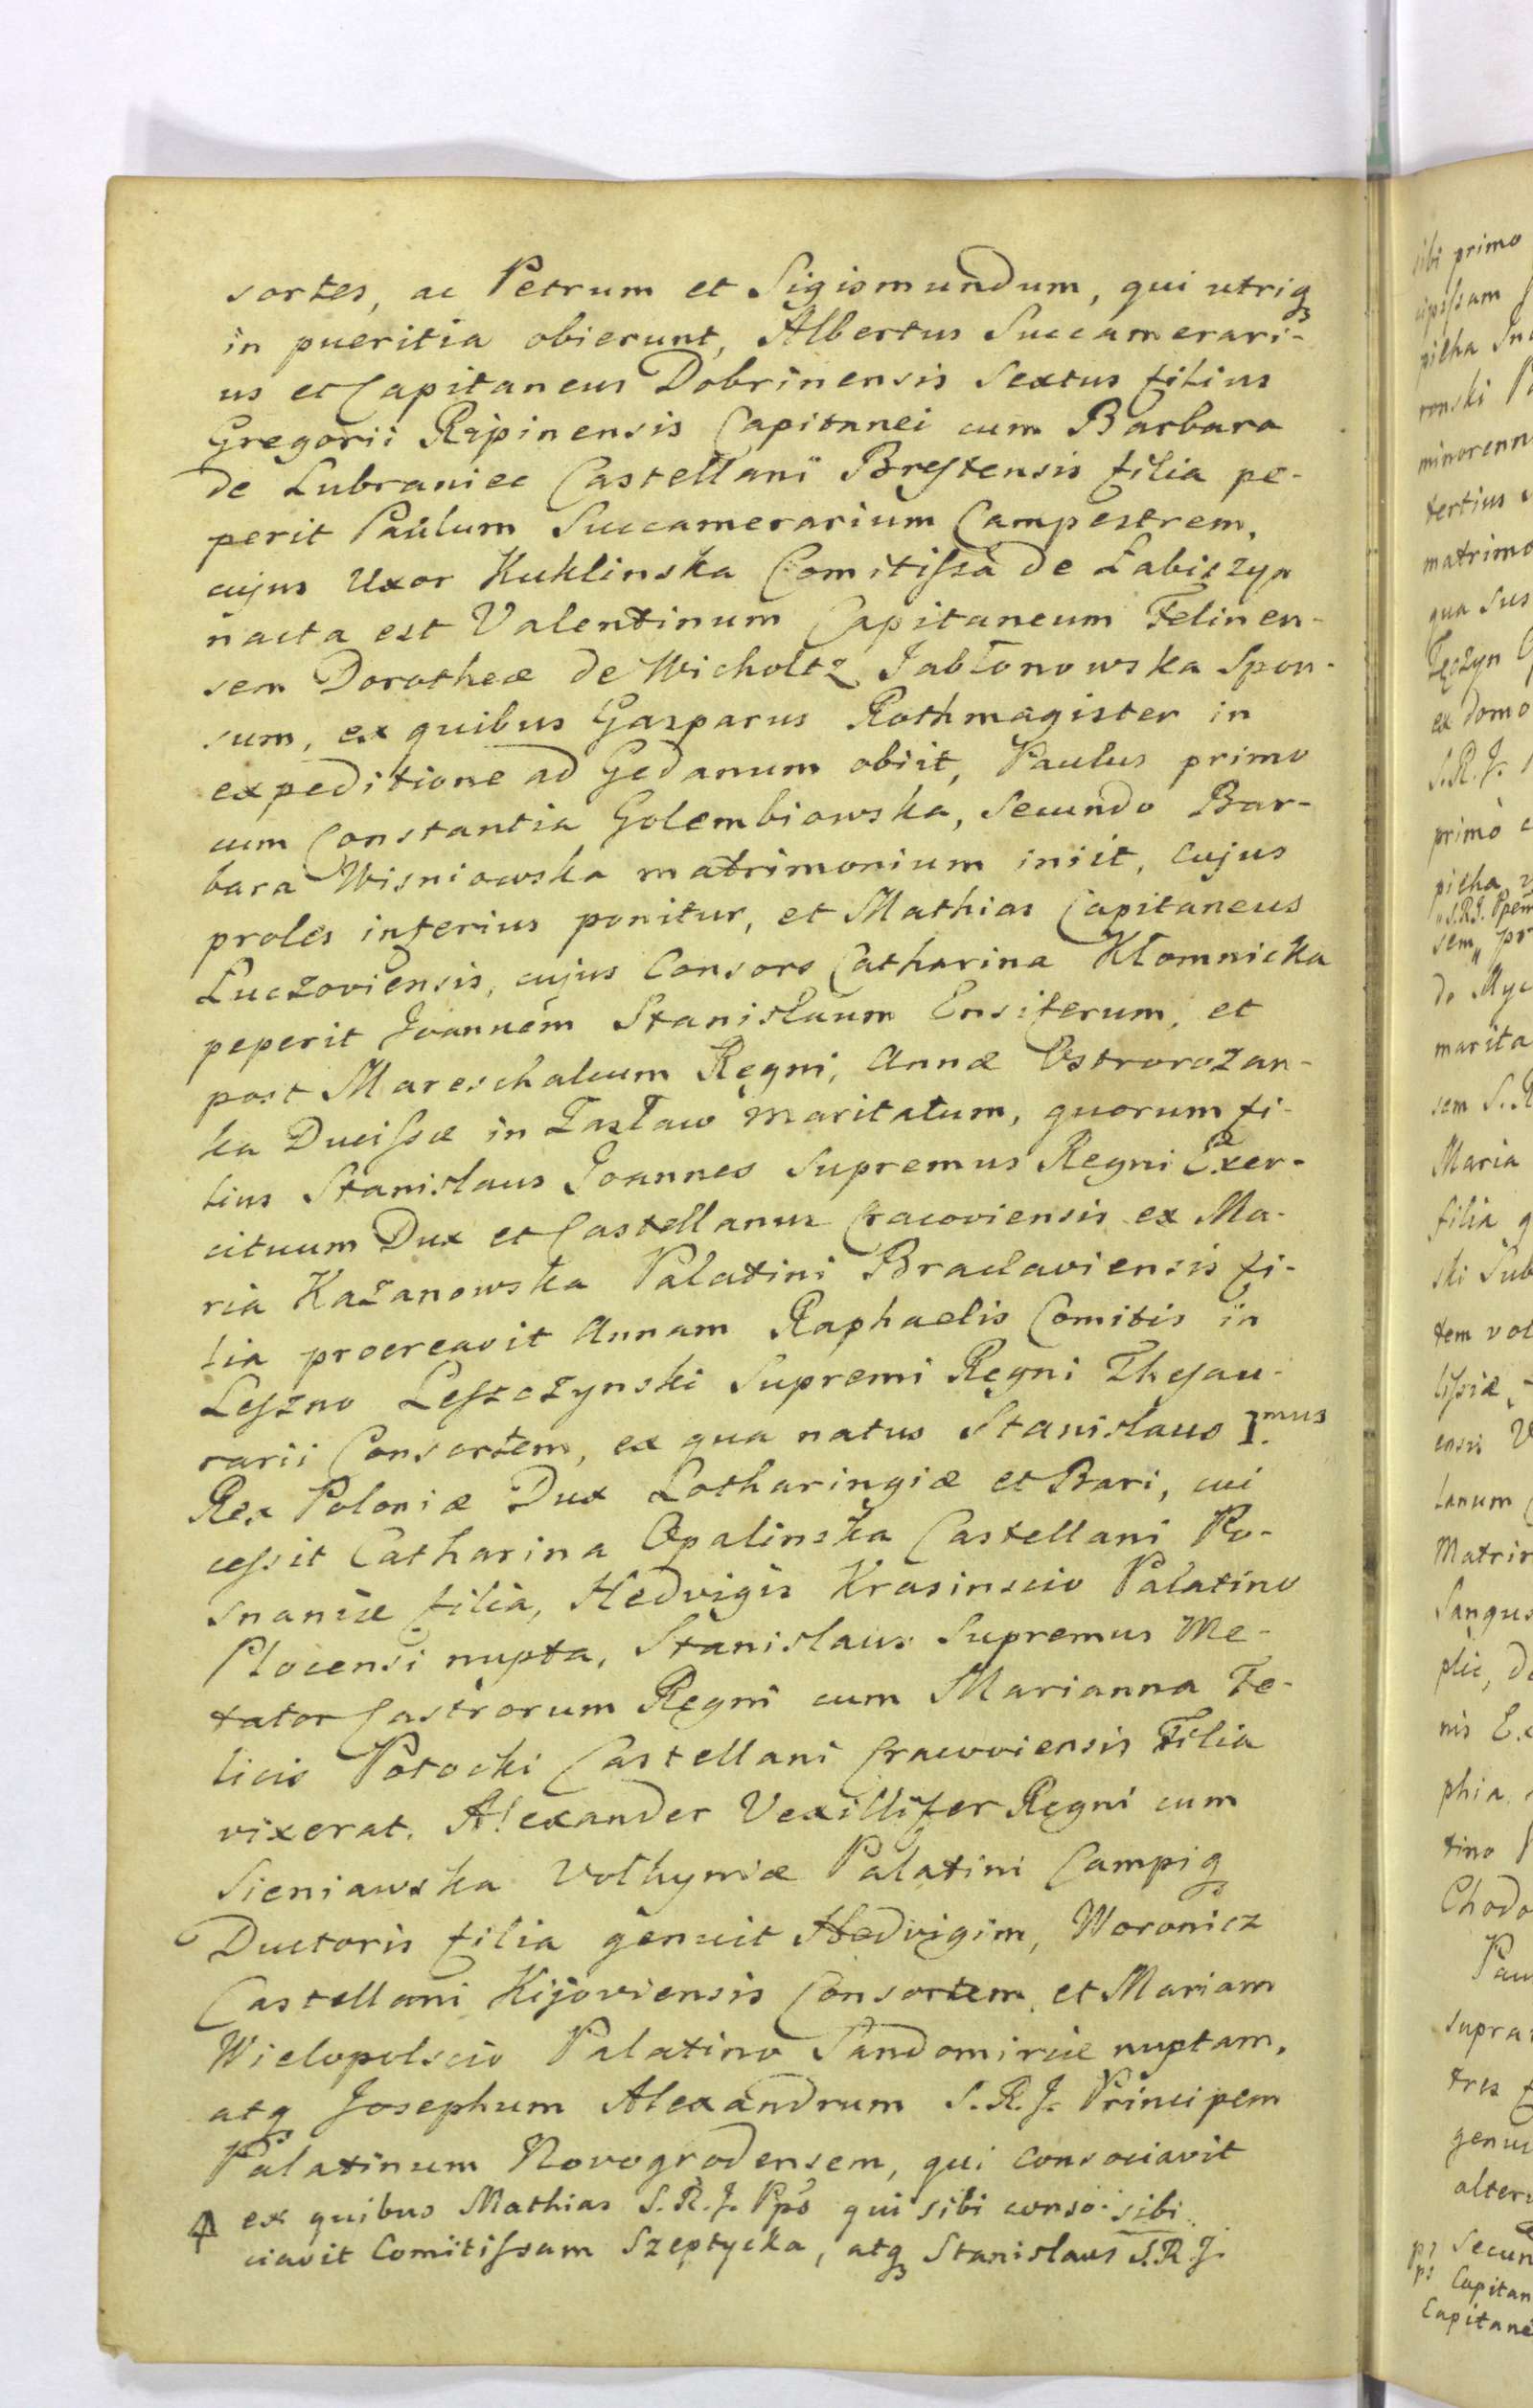 sortes, ac Petrum et Sigismundum, qui utriq₃
in pueritia obierunt, Albertus Succamerari-
us et Capitaneus Dobrinensis Sextus filius
Gregorii Ripinensis Capitanei cum Barbara
de Lubraniec Castellani Brestensis filia pe-
perit Paulum Succamerarium Campestrem,
cujus Uxor Kuklinska Comitissa de Łabiszyn
nacta est Valentinum Capitaneum Felinen-
sem Dorotheæ de Wicholtz Jabłonowska Spon-
sum, ex quibus Gasparus Rothmagister in
expeditione ad Gedanum obiit, Paulus primo
cum Constantia Golembiowska, Secundo Bar-
bara Wisniowska matrimonium iniit, cujus
proles inferius ponitur, et Mathias Capitaneus
Luczoviensis, cujus Consors Catharina Kłomnicka
peperit Joannem Stanisłaum Ensiferum, et
post Mareschalcum Regni, Annæ Ostrorozan-
ka Ducissæ in Zasław maritatum, quorum fi-
lius Stanislaus Joannes Supremus Regni Exer-
cituum Dux et Castellanus Cracoviensis ex Ma-
ria Kazanowska Palatini Braclaviensis fi-
lia procreavit Annam Raphaelis Comitis in
Leszno Leszczynski Supremi Regni Thesau-
rarii Consortem, ex qua natus Stanislaus I.mus
Rex Poloniæ Dux Lotharingiæ et Bari, cui
cessit Catharina Opalinska Castellani Po-
snaniæ filia, Hedvigis Krasinscio Palatino
Plocensi nupta, Stanislaus Supremus Me-
tator Castrorum Regni cum Marianna Fe-
licis Potocki Castellani Cracoviensis Filia
vixerat. Alexander Vexillifer Regni cum
Sieniawska Volhyniæ Palatini Campiq₃
Ductoris filia genuit Hedvigim, Woronicz
Castellani Kijoviensis Consortem, et Mariam
Wielopolscio Palatino Sandomiriæ nuptam,
atq₃ Josephum Alexandrum S.R.J. Principem
Palatinum Novogrodensem, qui consociavit
ex quibus Mathias S.R.J. Pps qui sibi conso- sibi
ciavit Comitissam Szeptycka, atq₃ Stanislaus S.R.J.
sibi primo
cipissam
pieha
ronski
minorenn
tertius
matrimo
qua Sus
Tęczyn
ex domo
S.R.J.
primò
pieha
S.R.J. Ppem
sem
de Myc
marita
sem S.R
Maria
filia q
ski Sub
tem vol
lissiæ
ensis
lanum
Matrim
Sangus
plic, de
nis Ex
phia
tino
Chodo
Pau
supra
tres
genui
alter
Secun
Capitan
Capitane